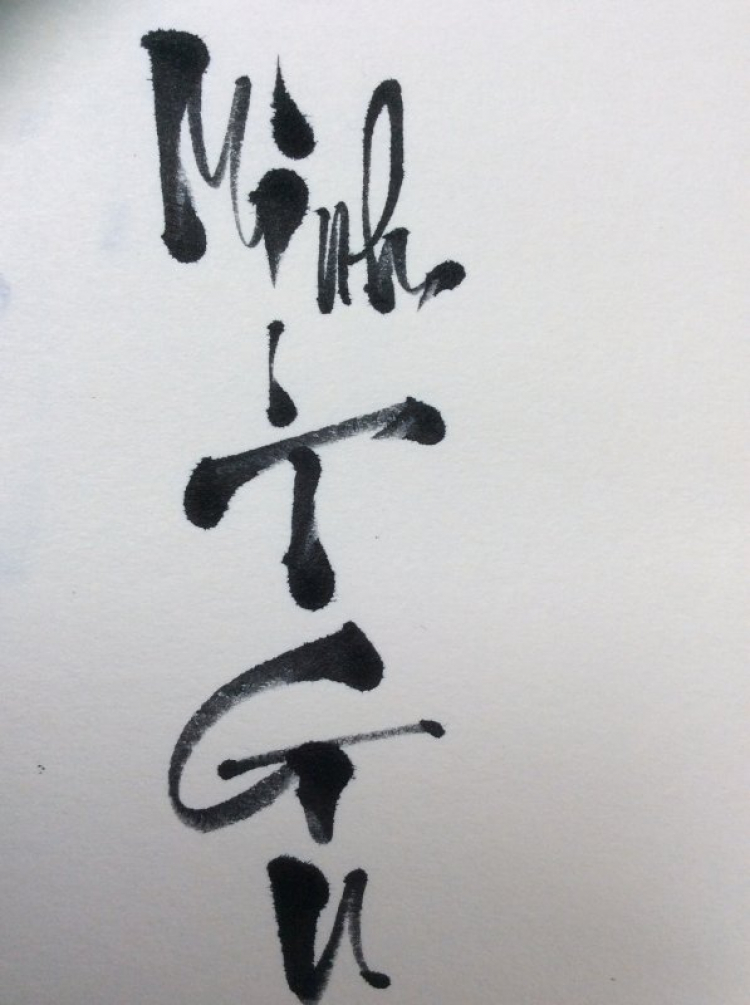 Minh
T
G
u